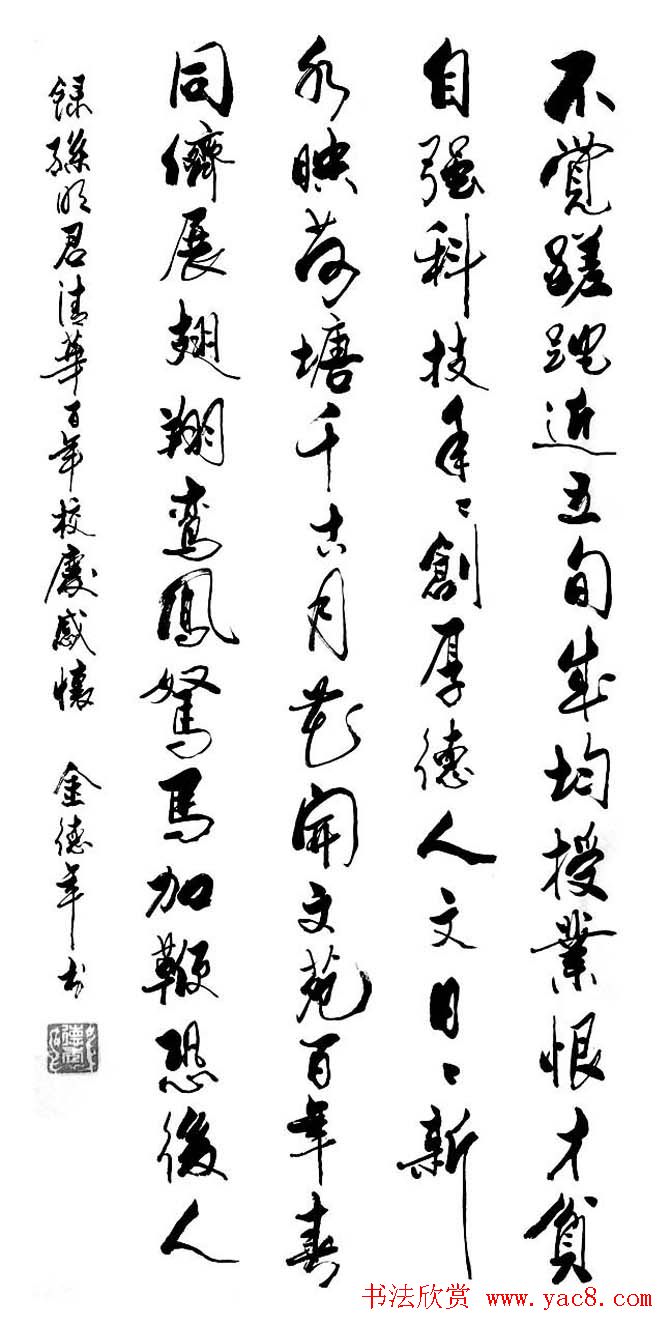 不覺蹉跎近五旬成均授業恨才貧
自强科技年〻創厚德人文日〻新
水映荷塘千古月花開文苑百年春
同儕展翅翔鸾鳳駑馬加鞭恐後人
録孫明君清華百年校慶感懷 金德年书
书法欣赏 www.yac8.com